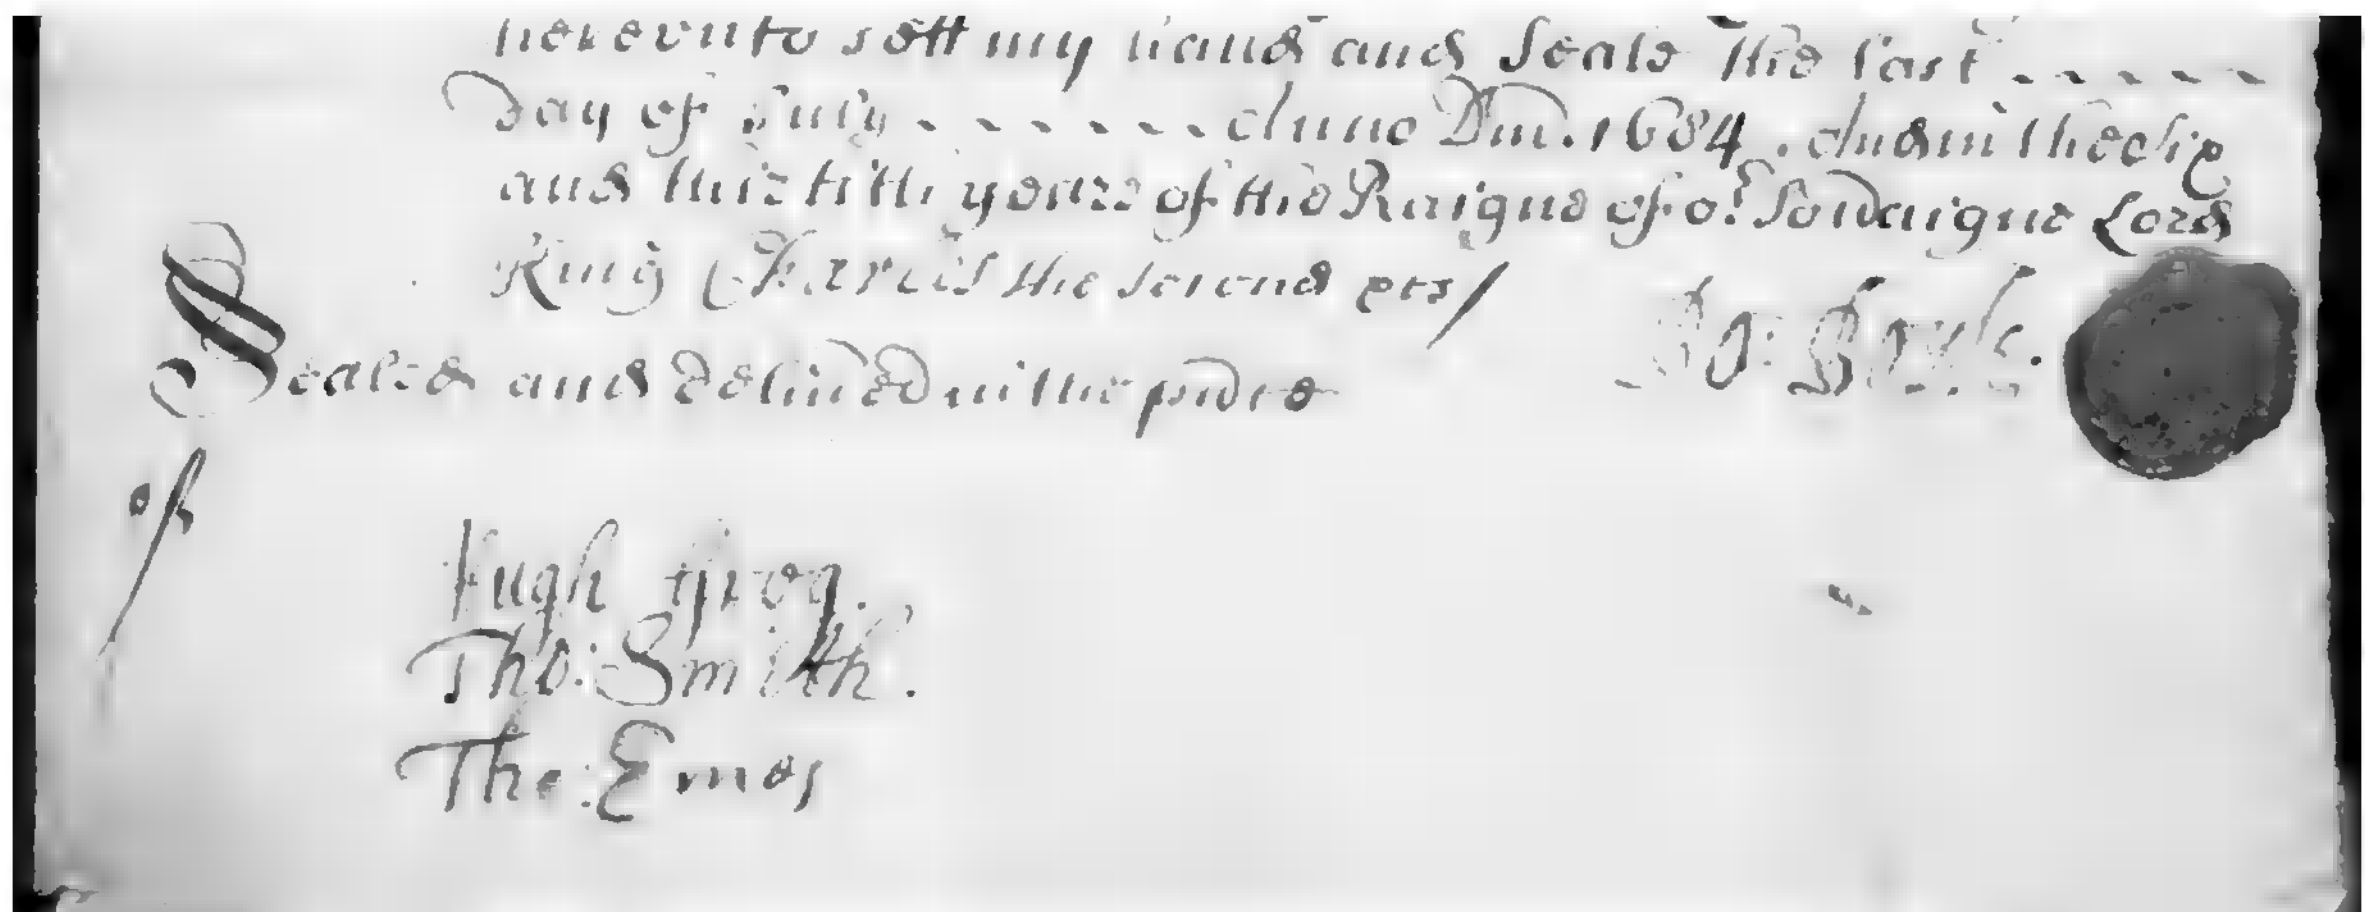 hereunto sett my hand and Seale the last - - - - -
Day of July - - - - - - - Anno Dni. 1684. And in the six
and thirtith yeare of the Raigne of or. Sovaigne Lord
King Charles the second etc /
Sealed and delived in the psnce
Jo:
of
Hugh ffrog.
Tho: Smith.
Tho: Emes